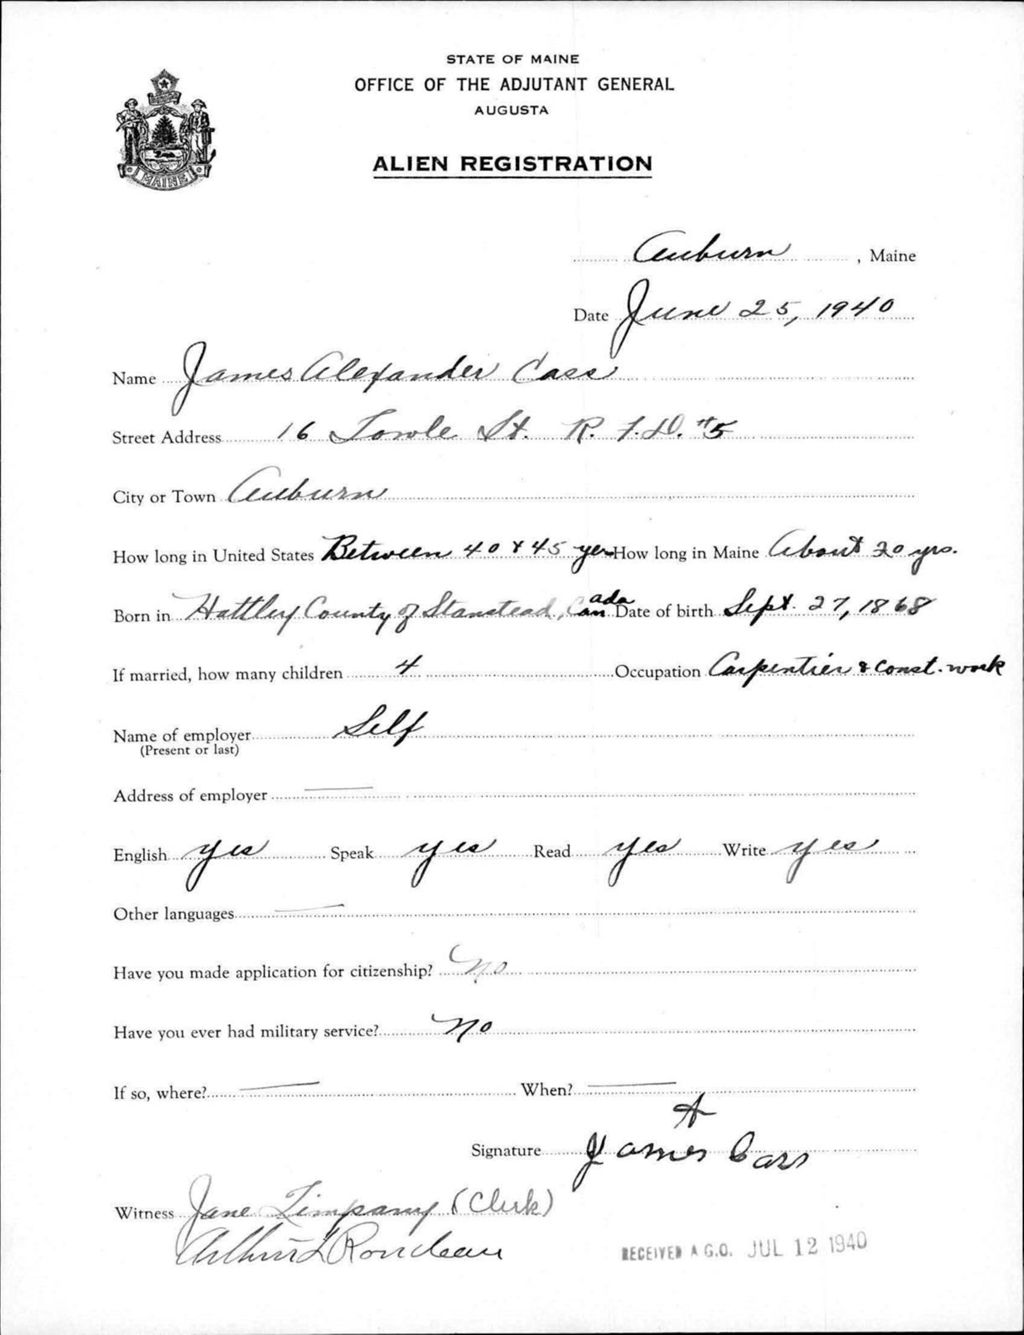 STATE OF MAINE
OFFICE OF THE ADJUTANT GENERAL
AUGUSTA
ALIEN REGISTRATION
MAINE
Auburn, Maine
Date June 25, 1940
Name James Alexander Cass
Street Address 16 Towle St. R. F. D. #5
City or Town Auburn
How long in United States Between 40 & 45 yrs How long in Maine About 20 yrs.
Born in Hattley County of Stanstead, Canada Date of birth Sept. 27, 1868
If married, how many children 4 Occupation Carpentier & Const. work
Name of employer Self
(Present or last)
Address of employer —
English yes Speak yes Read yes Write yes
Other languages —
Have you made application for citizenship? No
Have you ever had military service? No
If so, where? — When? —
Signature James A Cass
Witness Jane Timpany (Clerk)
Arthur L Rondeau
RECEIVED A.G.O. JUL 12 1940